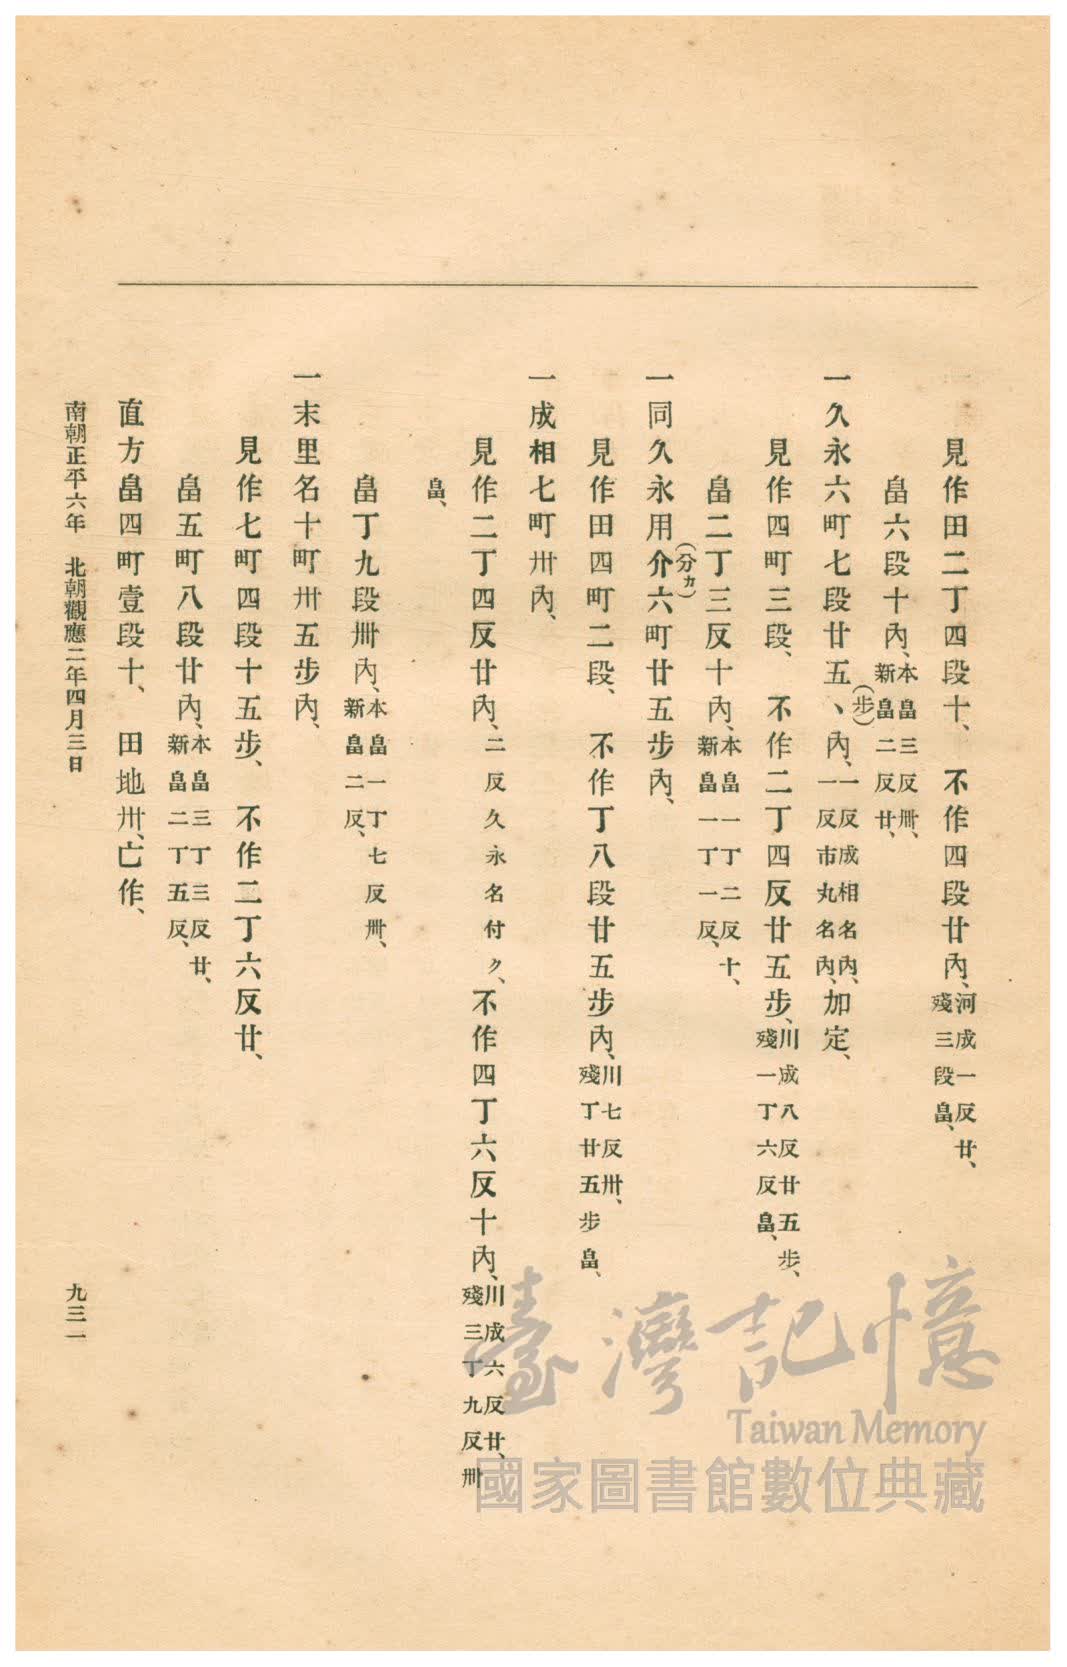 見作田二丁四段十、　不作四段廿內、河成一反廿、
殘三段畠、
畠六段十內、本畠三反卌、
新畠二反廿、
一久永六町七段廿五、(步)內、一反成相名內、
一反市丸名內、加定、
見作四町三段、　不作二丁四反廿五步、川成八反廿五步、
殘一丁六反畠、
畠二丁三反十內、本畠一丁二反十、
新畠一丁一反、
一同久永用介(分カ)六町廿五步內、
見作田四町二段、　不作丁八段廿五步內、川七反卅、
殘丁廿五步畠、
一成相七町卅內、
見作二丁四反廿內、二反久永名付ク、不作四丁六反十內、川成六反廿、
殘三丁九反卌
畠、
畠丁九段卌內、本畠一丁七反卌、
新畠二反、
一末里名十町卅五步內、
見作七町四段十五步、　不作二丁六反廿、
畠五町八段廿內、本畠三丁三反廿、
新畠二丁五反、
直方畠四町壹段十、　田地卅、亡作、
南朝正平六年　北朝觀應二年四月三日
九三一
臺灣記憶
Taiwan Memory
國家圖書館數位典藏